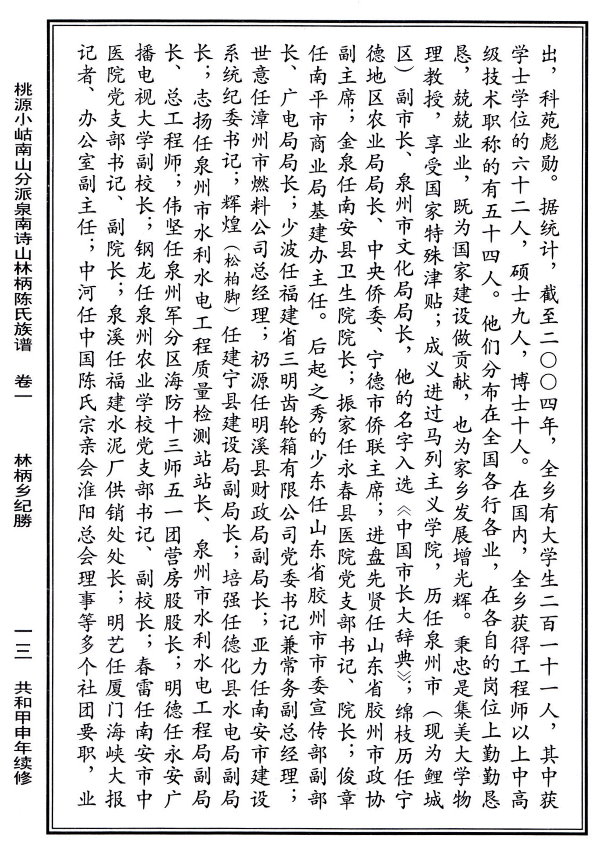 出，科苑彪勋。据统计，截至二〇〇四年，全乡有大学生二百一十一人，其中获
学士学位的六十二人，硕士九人，博士十人。在国内，全乡获得工程师以上中高
级技术职称的有五十四人。他们分布在全国各行各业，在各自的岗位上勤勤恳
恳，兢兢业业，既为国家建设做贡献，也为家乡发展增光辉。秉忠是集美大学物
理教授，享受国家特殊津贴；成义进过马列主义学院，历任泉州市（现为鲤城
区）副市长、泉州市文化局局长，他的名字入选《中国市长大辞典》；绵枝历任宁
德地区农业局局长、中央侨委、宁德市侨联主席；进盘先贤任山东省胶州市政协
副主席；金泉任南安县卫生院院长；振家任永春县医院党支部书记、院长；俊章
任南平市商业局基建办主任。后起之秀的少东任山东省胶州市市委宣传部副部
长、广电局局长；少波任福建省三明齿轮箱有限公司党委书记兼常务副总经理；
世意任漳州市燃料公司总经理；礽源任明溪县财政局副局长；亚力任南安市建设
系统纪委书记；辉煌（松柏脚）任建宁县建设局副局长；培强任德化县水电局副局
长；志扬任泉州市水利水电工程质量检测站站长、泉州市水利水电工程局副局
长、总工程师；伟坚任泉州军分区海防十三师五一团营房股股长；明德任永安广
播电视大学副校长；钢龙任泉州农业学校党支部书记、副校长；春雷任南安市中
医院党支部书记、副院长；泉溪任福建水泥厂供销处处长；明艺任厦门海峡大报
记者、办公室副主任；中河任中国陈氏宗亲会淮阳总会理事等多个社团要职，业
桃源小岵南山分派泉南诗山林柄陈氏族谱 卷一 林柄乡纪勝 一三 共和甲申年续修